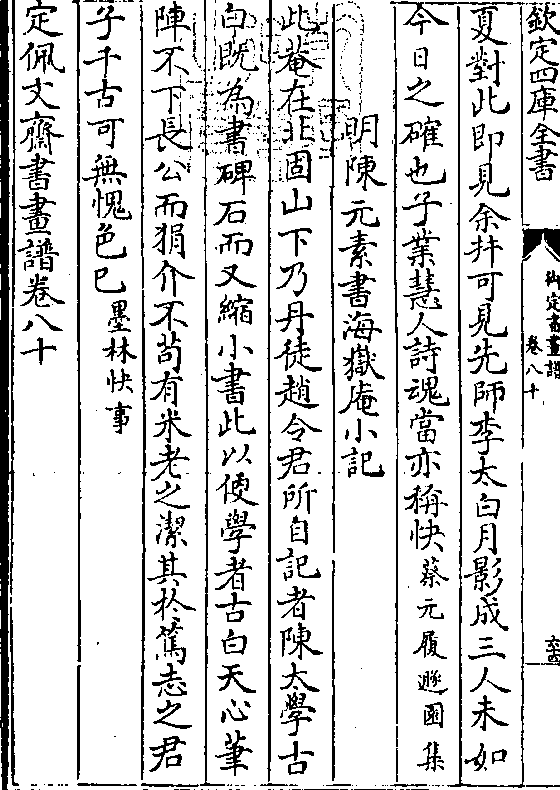 欽定四庫全書
御定書畫譜
卷八十
六十四
夏對此即見余并可見先師李太白月影成三人未如
今日之確也子業慧人詩魂當亦稱快蔡元履遯園集
明陳元素書海嶽庵小記
此菴在北固山下乃丹徒趙令君所自記者陳太學古
白既為書碑石而又縮小書此以便學者古白天心筆
陣不下長公而狷介不苟有米老之潔其於篤志之君
子千古可無愧色已墨林快事
定佩文齋書畫譜卷八十